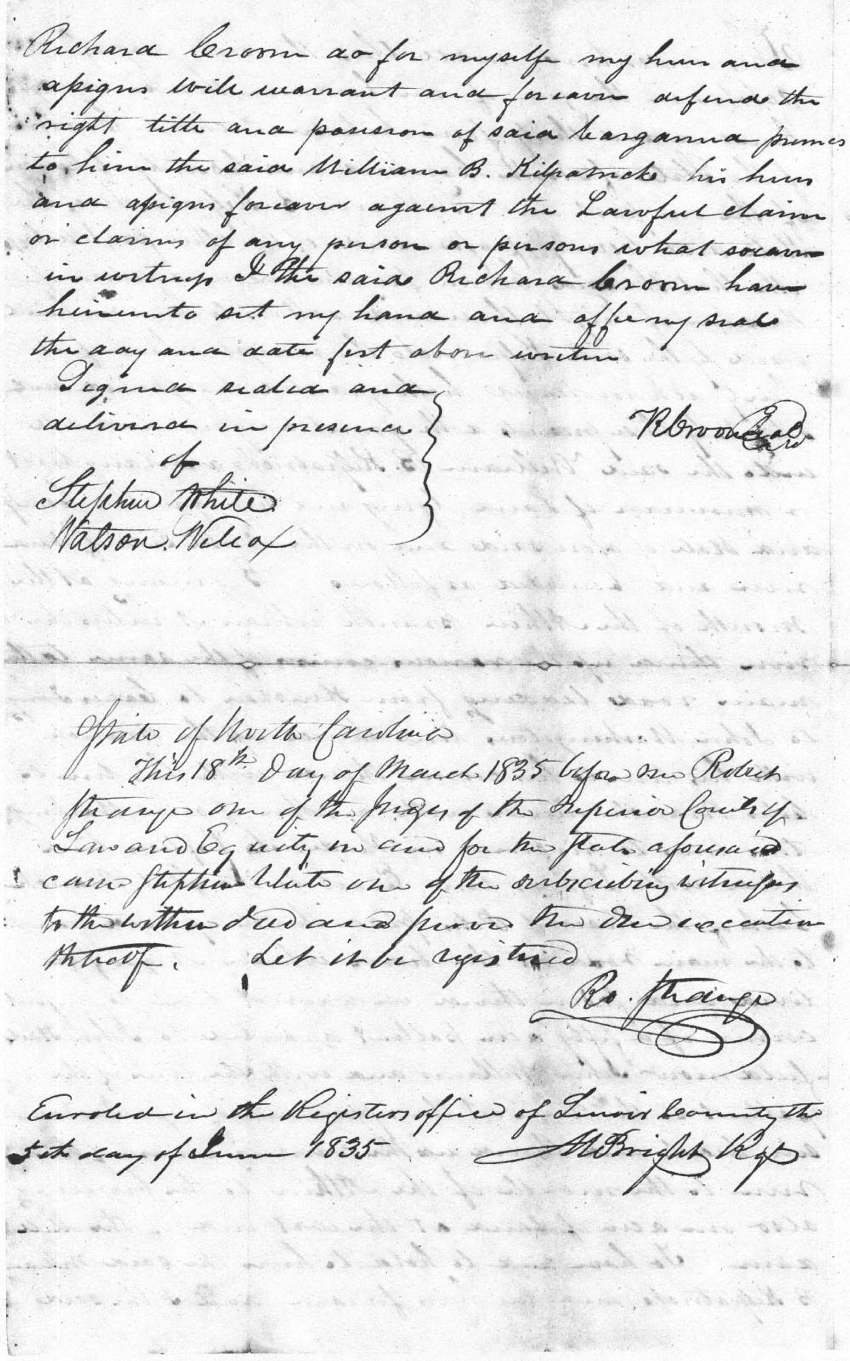 Richard Croom do for myself my heirs and
assigns will warrant and forever defend the
right title and possesion of said bargained
to him the said William B. Kilpatrick his heirs
and assigns forever against the Lawful claim
or claims of any person or persons what soever
in witness I the said Richard Croom have
hereunto set my hand and affix my seal
the day and date first above writen
Signed sealed and
delivered in presence
of
R Croom Seal
Stephen White
Watson Wilcox
State of North Carolina
This 18th Day of March 1835 before me Robert
Strange one of the Judges of the Superior Courts of
Law and Equity in and for the State aforesaid
came Stephen White one of the subscribing witnesses
to the within deed and proved the due execution
thereof. Let it be registered
Ro. Strange
Enroled in the Registers office of Lenoir County the
5th day of June 1835 Bright Rgr